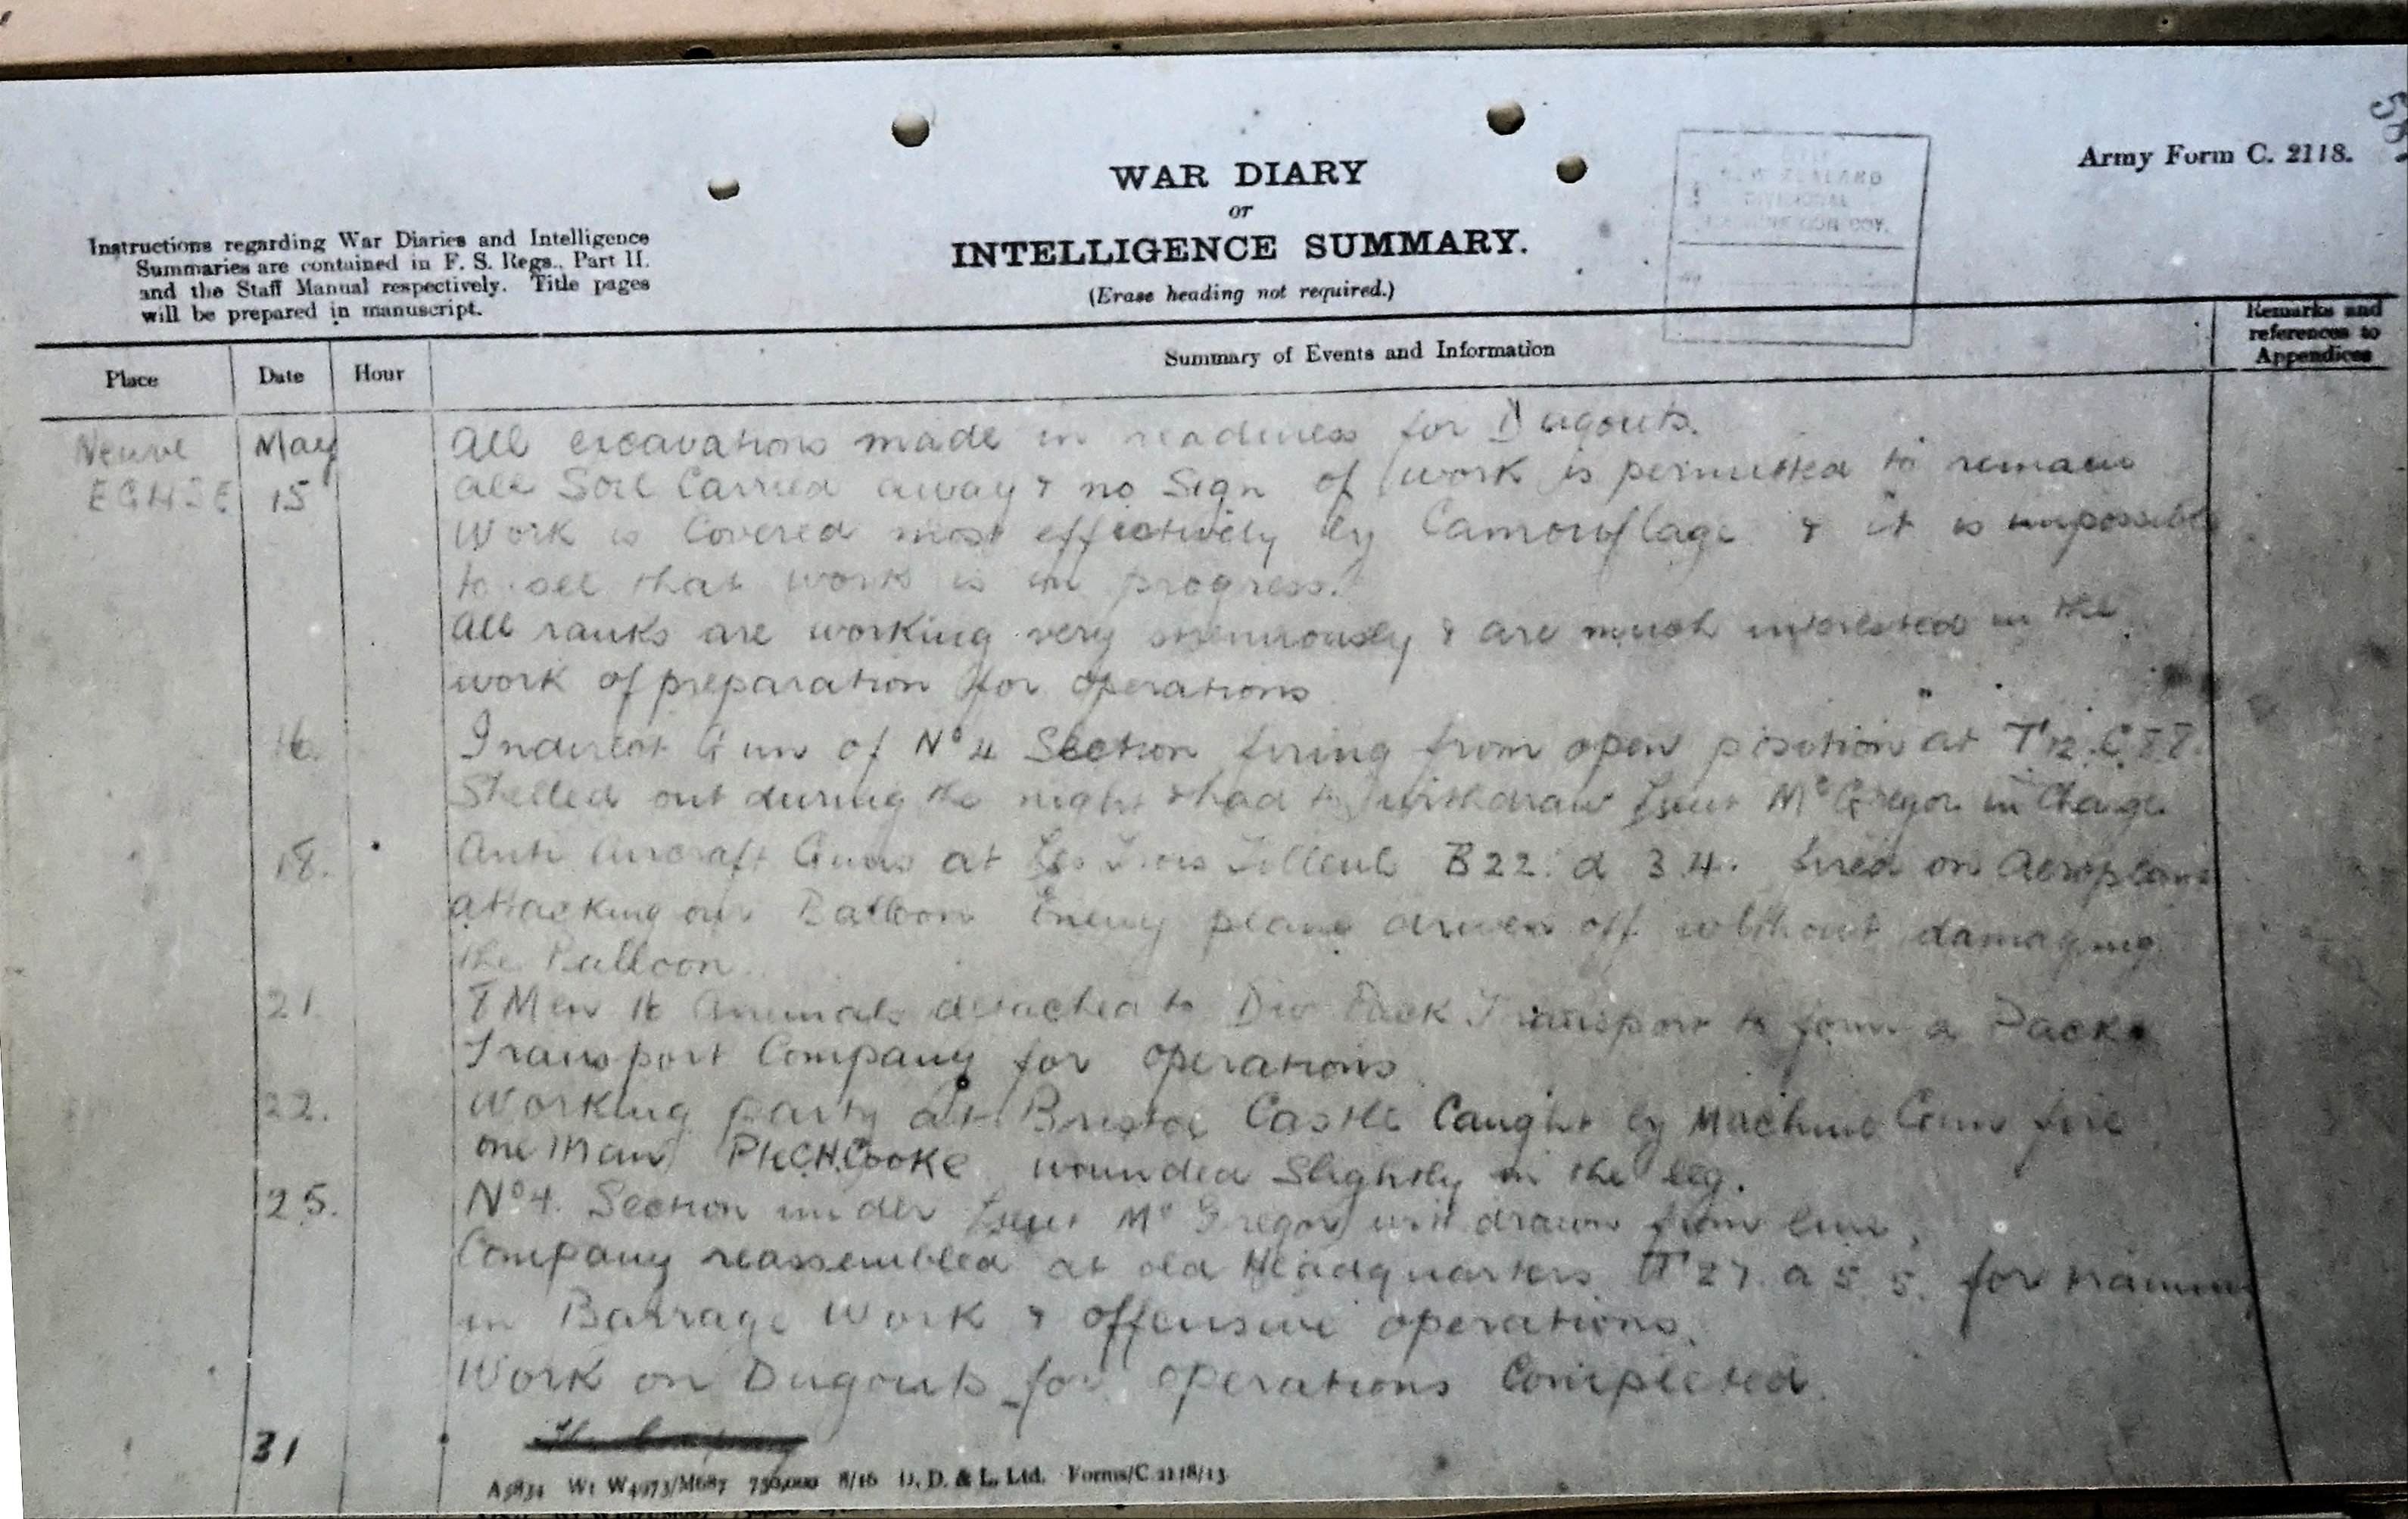 Army Form C. 2118.
WAR DIARY
or
INTELLIGENCE SUMMARY.
(Erase heading not required.)
Instructions regarding War Diaries and Intelligence
Summaries are contained in F. S. Regs., Part II.
and the Staff Manual respectively. Title pages
will be prepared in manuscript.
NEW ZEALAND
DIVISIONAL
MACHINE GUN COY.
Place Date Hour Summary of Events and Information Remarks and
references to
Appendices
Neuve May All excavations made in readiness for Dugouts.
EGHSE 15 All Soil Carried away & no Sign of work is permitted to remain
Work is Covered most effectively by Camouflage & it is impossible
to see that work is in progress.
All ranks are working very strenuously & are much interested in the
work of preparation for operations
16. Indirect Gun of No 4 Section firing from open position at T12.C.8.8.
Shelled out during the night & had to withdraw Lieut McGregor in Charge
18. Anti Aircraft Guns at Les Trois Tilleuls B22. d 3.4. fired on Aeroplane
attacking our Balloon Enemy plane driven off without damaging
the Balloon.
21. 8 Men 16 Animals detached to Div Pack Transport to form a Pack
Transport Company for operations
22. Working party at Bristol Castle Caught by Machine Gun fire
one Man Pte C.H. Cooke wounded Slightly in the leg.
25. No 4. Section under Lieut McGregor withdrawn from line.
Company reassembled at old Headquarters T27. a 5. 5. for training
in Barrage Work & offensive operations.
Work on Dugouts for operations Completed.
31 The Company
A5834 Wt W4973/M687 750,000 8/16 D. D. & L. Ltd. Forms/C.2118/13